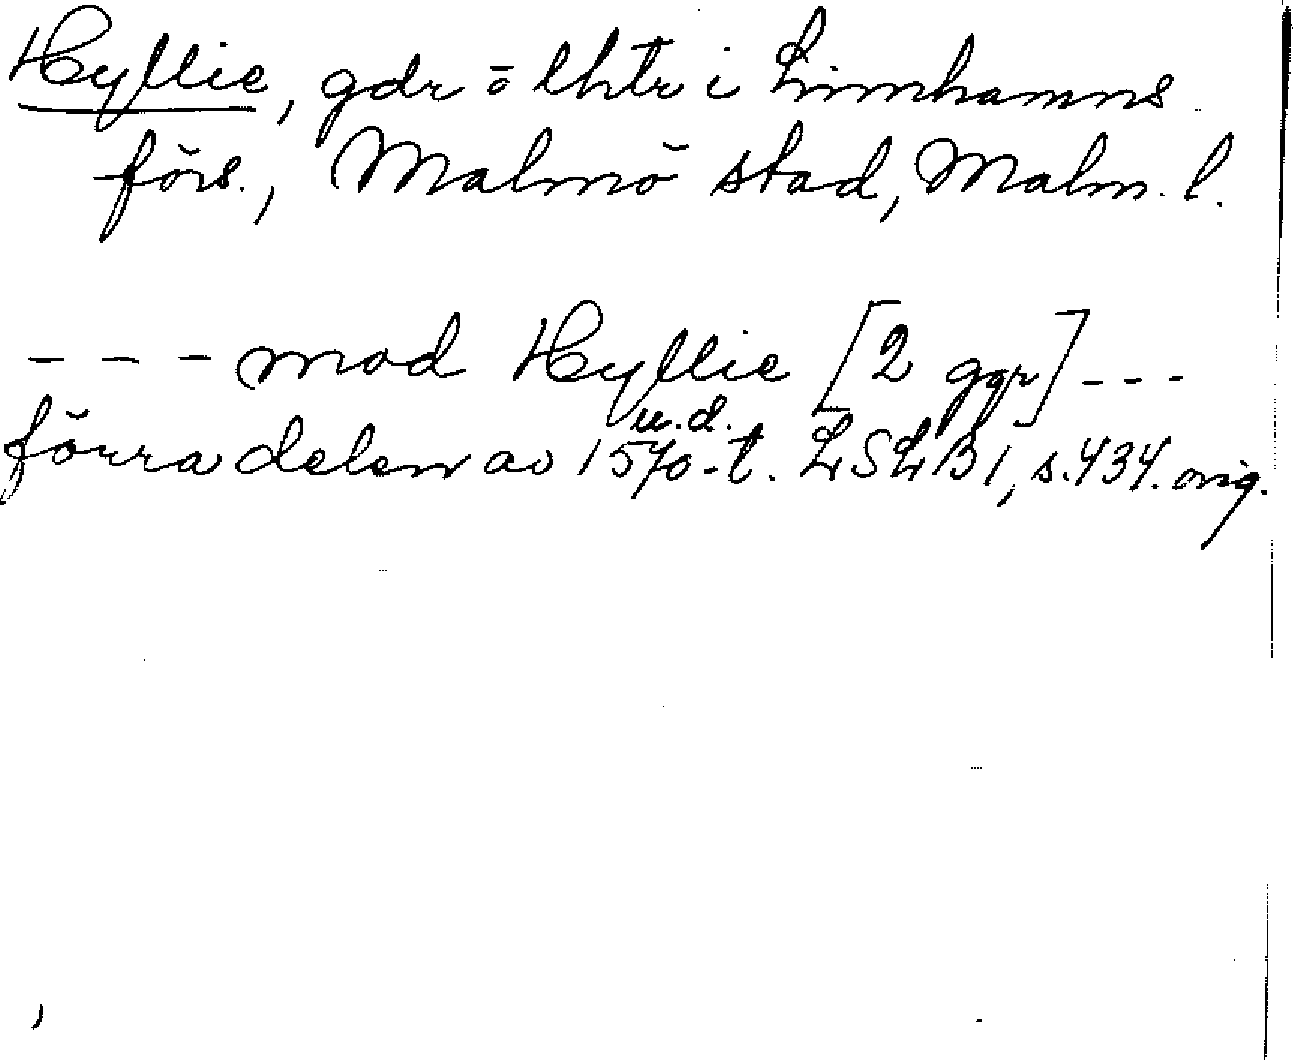 Hyllie, gdr o lhtr i Limhamns
förs., Malmö stad, Malm. l.
- - - mod Hyllie [2 ggr] - - -
u.d.
förra delen av 1570-t. LSLB 1, s. 434. orig.